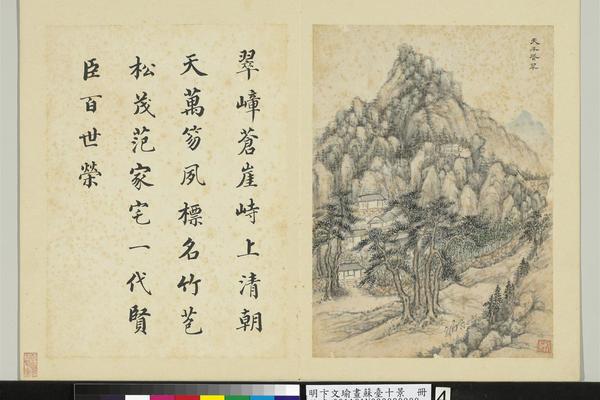 天平翠
翠嶂蒼崖峙上清朝
天萬笏夙標名竹苞
松茂范家宅一代賢
臣百世榮
明卞文瑜畫蘇臺十景 冊
4